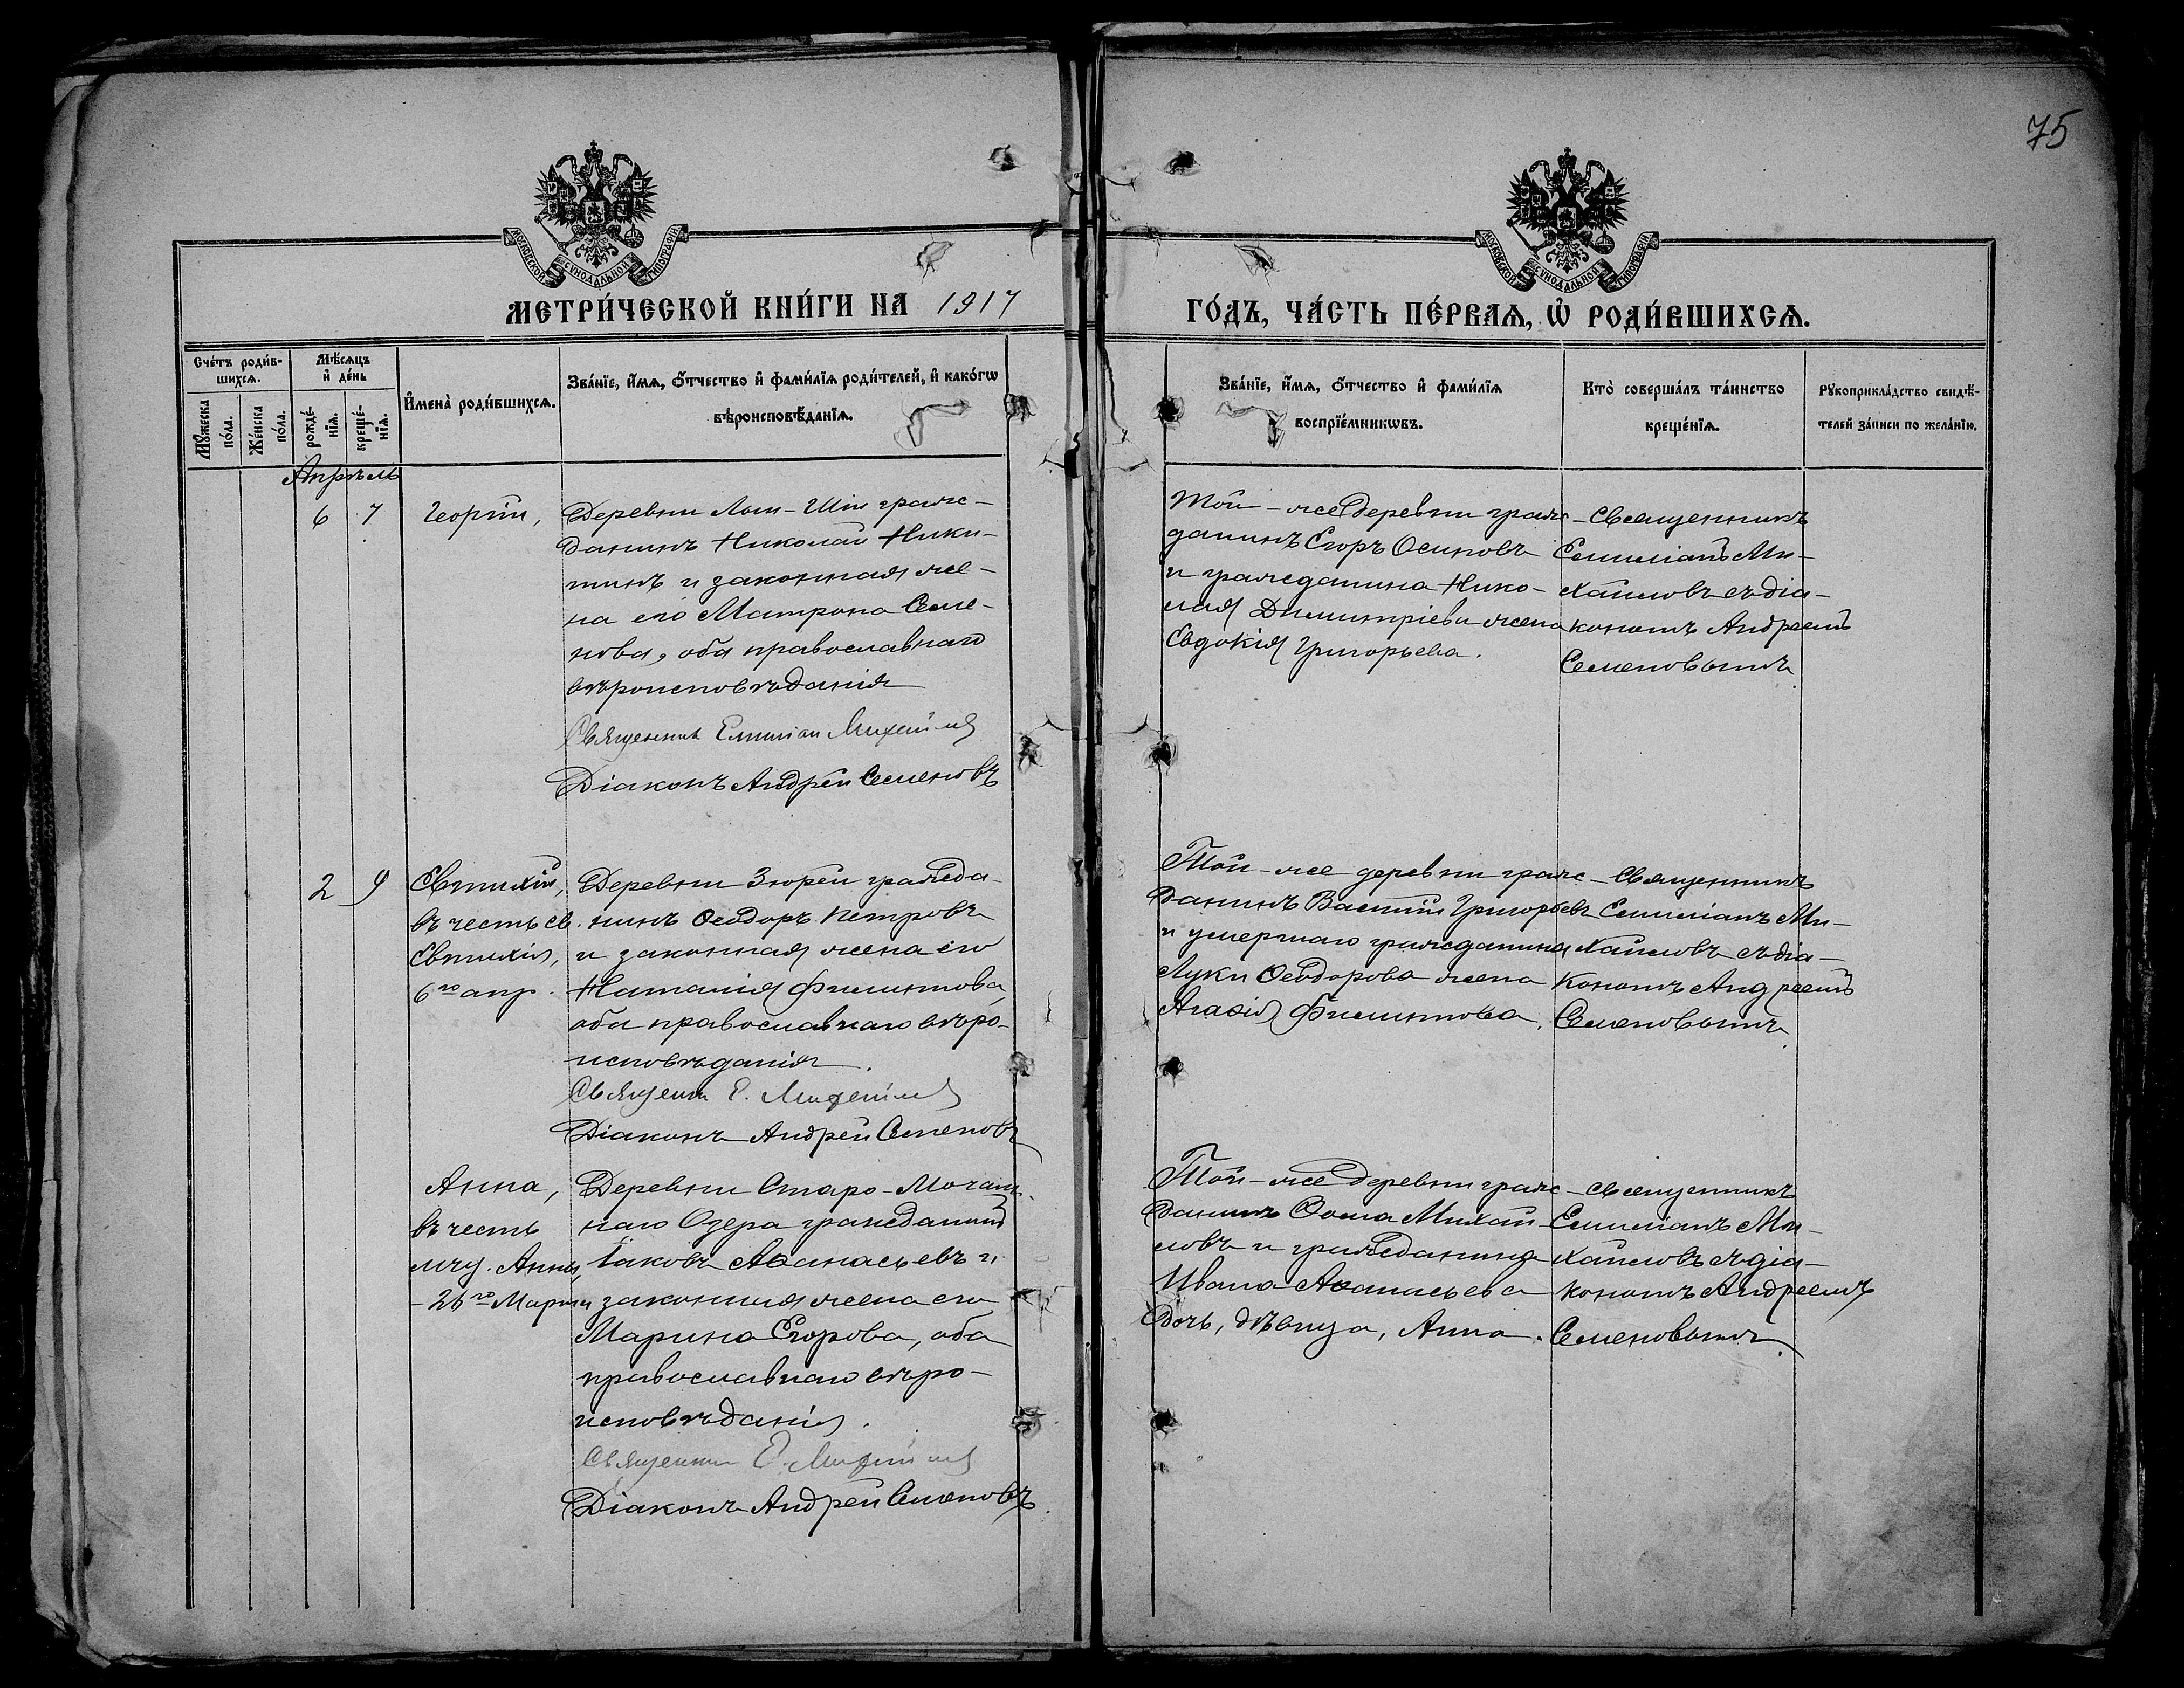 75
МОСКОВСКОЙ СѴНОДАЛЬНОЙ ТИПОГРАФІИ
МОСКОВСКОЙ СѴНОДАЛЬНОЙ ТИПОГРАФІИ
МЕТРИ́ЧЕСКОЙ КНИ́ГИ НА 1917
ГО́ДЪ, ЧА́СТЬ ПЕ́РВАѦ, Ѡ҆ РОДИ́ВШИХСѦ.
Сче́тъ роди́в-
шихсѧ.
Мѣ́сѧцъ
и҆ де́нь
Мꙋ́жеска
по́ла.
Же́нска
по́ла.
рожде́-
нїѧ.
креще́-
нїѧ.
И҆мена̀ роди́вшихсѧ.
Зва́нїе, и҆́мѧ, о҆́тчество и҆ фами́лїѧ роди́телей, и҆ како́гѡ
вѣроисповѣ́данїѧ.
Зва́нїе, и҆́мѧ, о҆́тчество и҆ фами́лїѧ
воспрїе́мникѡвъ.
Кто̀ соверша́лъ та́инство
креще́нїѧ.
Рꙋкоприкла́дство свидѣ́-
телей за́писи по жела́нїю.
Апрѣль
6 7 Георгій,
Деревни Лыи-Шіи граж-
данинъ Николай Ники-
тинъ и законная же-
на его Матрона Семе-
нова, оба православнаго
вѣроисповѣданія
Священник Емилиан Михайлов
Діаконъ Андрей Семеновъ
Той-же деревни граж-
данинъ Егоръ Осиповъ
и гражданина Нико-
лая Димитріева жена
Евдокія Григорьева.
Священникъ
Емиліанъ Ми-
хайловъ съ діа-
кономъ Андреемъ
Семеновымъ.
2 9 Евтихій,
въ честь св.
Евтихія,
6го апр.
Деревни Зюрей гражда-
нинъ Ѳеодоръ Петровъ
и законная жена его
Наталія Филиппова,
оба православнаго вѣро-
исповѣданія.
Священник Е. Михайлов
Діаконъ Андрей Семеновъ
Той-же деревни граж-
данинъ Василій Григорьевъ
и умершаго гражданина
Луки Ѳеодорова жена
Агаѳія Филиппова.
Священникъ
Емиліанъ Ми-
хайловъ съ діа-
кономъ Андреемъ
Семеновымъ.
Анна,
въ честь
мчц. Анны,
- 26го Марта
Деревни Старо-Мочаль-
наго Озера гражданинъ
Іаковъ Аѳанасьевъ и
законная жена его
Марина Егорова, оба
православнаго вѣро-
исповѣданія.
Священник Е. Михайлов
Діаконъ Андрей Семеновъ.
Той-же деревни граж-
данинъ Ѳома Михай-
ловъ и гражданина
Ивана Аѳанасьева
дочь, дѣвица, Анна.
священникъ
Емиліанъ Ми-
хайловъ съ діа-
кономъ Андреемъ
Семеновымъ.